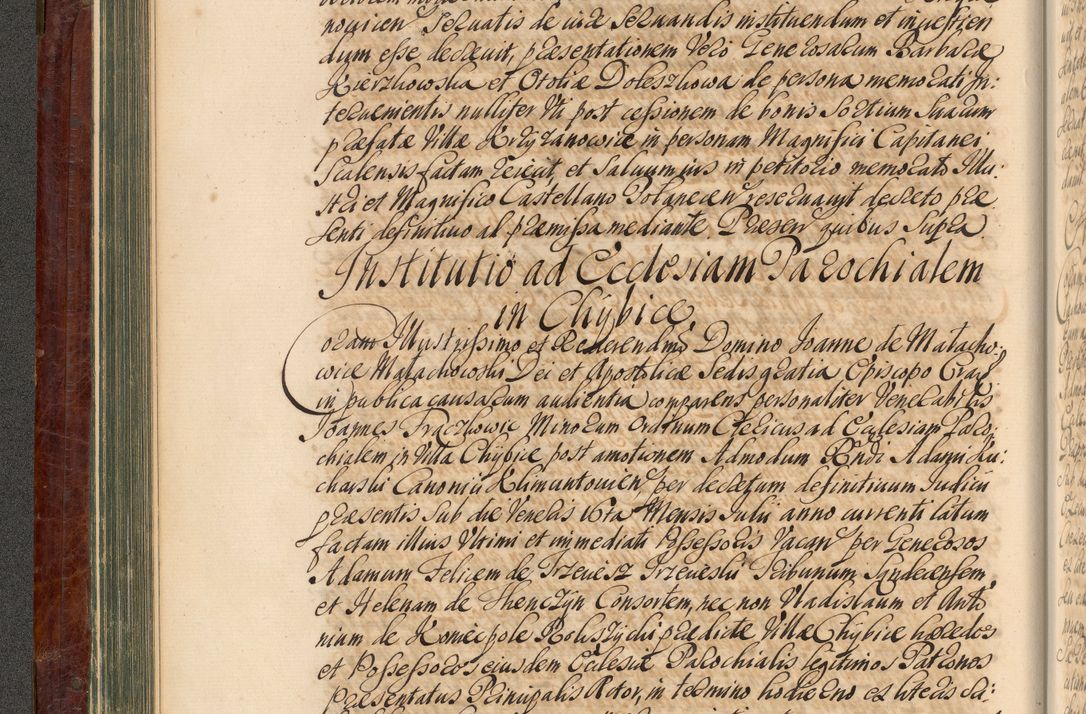 novicien servatis de iure servandis instituendum et investien
dum esse decrevit, præsentationem Vero Generosarum Barbaræ
Kierzkowska et Otoliæ Doleszkowa de persona memorati In-
tervenientis nulliter Uti post cessionem de bonis Sortium suarum
præfatæ Villæ Krzyzanowice in personam Magnifici Capitanei
Scalensis factam reiecit, et Salvum ius in petitorio memorato Illu-
stri et Magnifico Castellano Polanecen reservavit decreto præ
senti definitivo ad præmissa mediante. Præsen quibus Supra
Institutio ad Ecclesiam Parochialem
in Chybice
Coram Illustrissimo et Reverendmo Domino Joanne de Malacho-
wice Malachowski Dei et Apostolicæ Sedis gratia Episcopo Crac
in publica causarum audientia comparens personaliter Venerabilis
Joannes Fraczkowic Minorum Ordinum Clericus ad Ecclesiam Paro-
chialem in Villa Chybice post amotionem Admodum Rndi Adami Ku-
charski Canonici Klimuntovien per decretum definitivum Iudicii
præsentis sub die Veneris 16ta Mensis Iulii anno currenti latum
factam illius Ultimi et immediati Possessoris Vacan per Generosos
Adamum Felicem de Przeuesz Przeueski Tribunum Syradiensem,
et Helenam de Thenczyn Consortem, nec non Vladislaum et Anto
nium de Koniecpole Rokszycki prædictæ Villæ Chybice hæredes
et Possessores, eiusdem Ecclesiæ Parochialis legitimos Patronos
Præsentatus Principalis Actor, in termino hodierno ex literis ci-